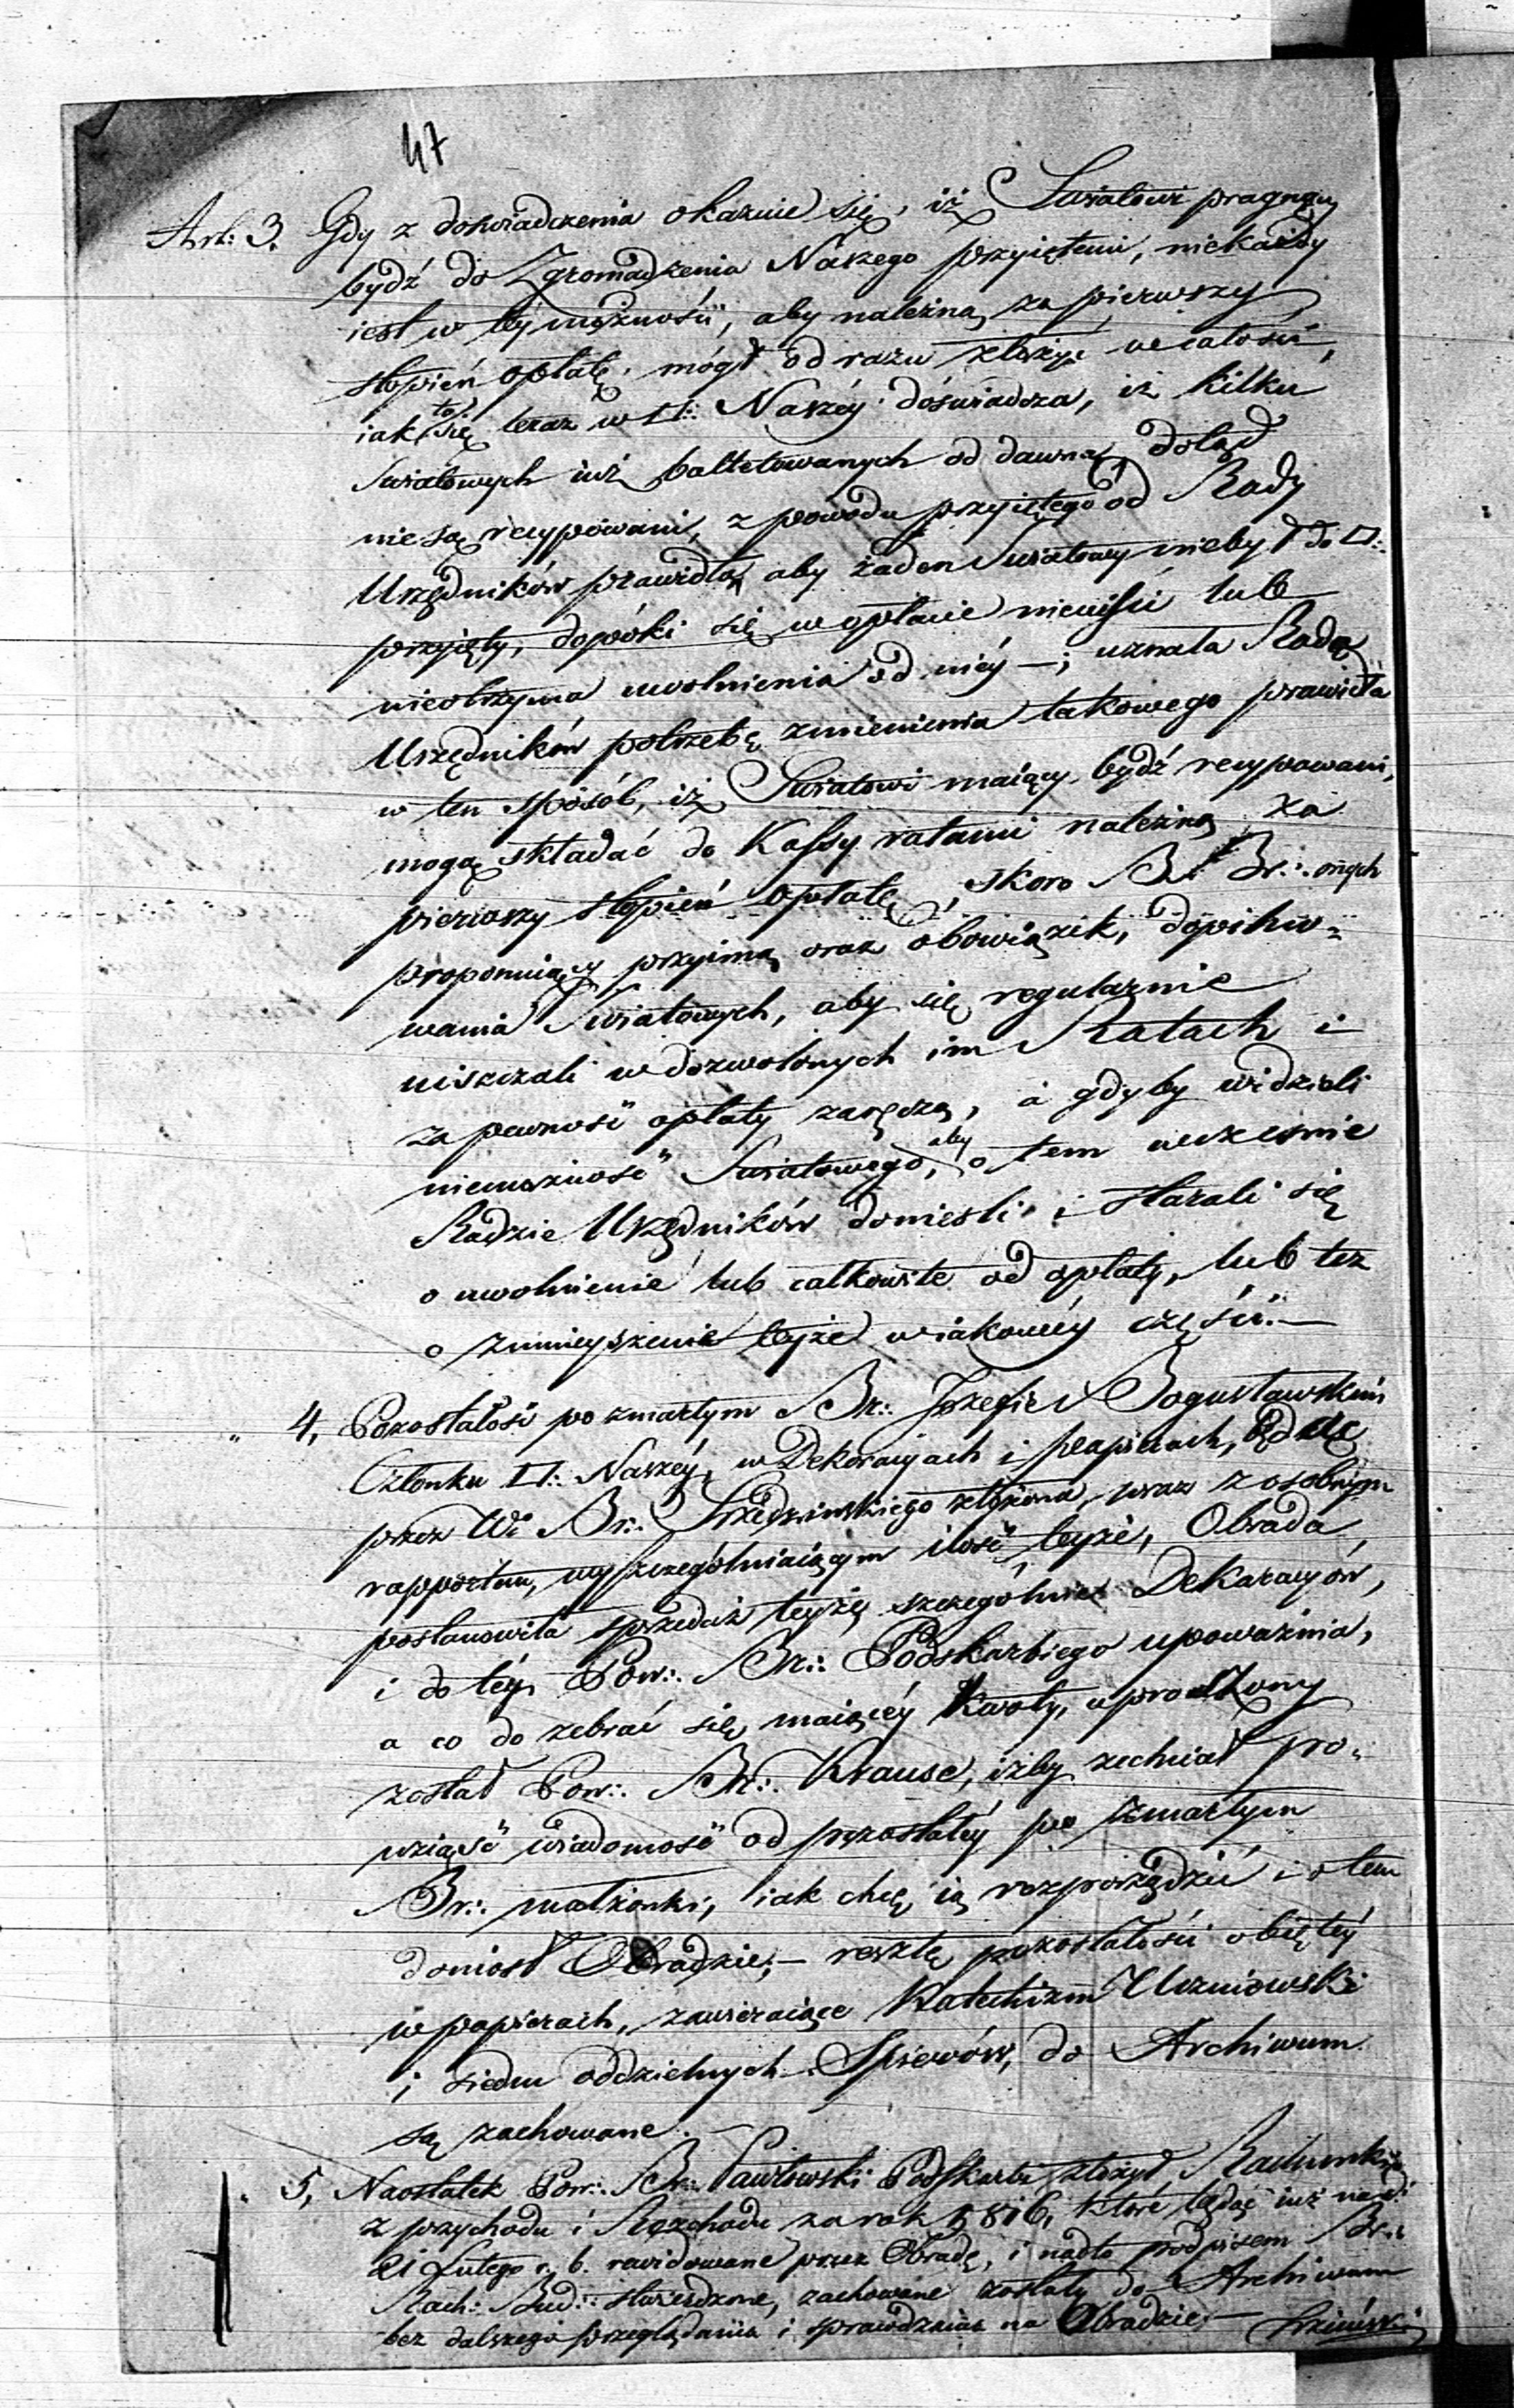 47
Art: 3. Gdy z doświadczenia okazuie się, iż Swiatowi pragnący
bydź do Zgromadzenia Naszego przyiętemi, niekażdy
iest w tey możności, aby należną za pierwszy
stopień opłatę, mógł od razu złożyć w całości,
iak to się teraz w □: Naszéy doświadcza, iż kilku
Swiatowych iuż balletowanych od dawna dotąd
nie są recypowani, z powodu przyiętego od Rady
Urzędników prawidła, aby żaden Swiatowy nie był do □:
przyięty, dopóki się w opłacie nieuiści lub
nieotrzyma uwolnienia od niéy —; uznała Rada
Urzędników potrzebę zmienienia takowego prawidła
w ten sposób, iż Swiatowi maiący bydź recypowani,
mogą składać do Kassy ratami należną za
pierwszy stopień opłatę, skoro B. Br:. onych
proponuiący przyimą oraz obowiązek, dopilno=
wania Swiatowych, aby się regularnie
uiszczali w dozwolonych im Ratach i
za pewność opłaty zaręczą, a gdyby widzieli
niemożność Swiatowego, aby o tem wcześnie
Radzie Urzędników donieśli, i starali się
o uwolnienie lub całkowite od opłaty, lub też
o zmnieyszenie teyże w iakowéy części. —
" 4, Pozostałość po zmarłym Br:. Jozefie Bogusławskim
Członku □: Naszéy, w Dekoracyach i papierach, będąc
przez W: Br:. złożona, wraz z osobnym
rapportem, wyszczególniaiącym ilość teyże, Obrada,
postanowiła sprzedaż teyże szczególnie Dekoracyów,
i do téy Pow:. Br:. Podskarbiego upoważnia,
a co do zebrać się maiącéy kwoty, uproszony
został Pow:. Br:. Krause, iżby zechciał po=
wziąść wiadomość od pozostałéy po zmarłym
Br:. małżonki, iak chce ią rozporządzić i o tem
doniosł Obradzie; — resztę pozostałości obiętéy
w papierach, zawieraiące Katechizm Uczniowski
i siedm oddzielnych Spiewów, do Archiwum
są zachowane. —
" 5, Naostatek Pow:. Br:. Pawłowski Podskarbi złożył Rachunki
z przychodu i Rozchodu za rok 5816, które będąc iuż na d:
21 Lutego r. b. rewidowane przez Obradę, i nadto podpisem Br:.
Rach: Bud:. stwierdzone, zachowane zostały do Archiwum
bez dalszego przeglądania i sprawdzania na Obradzie. —